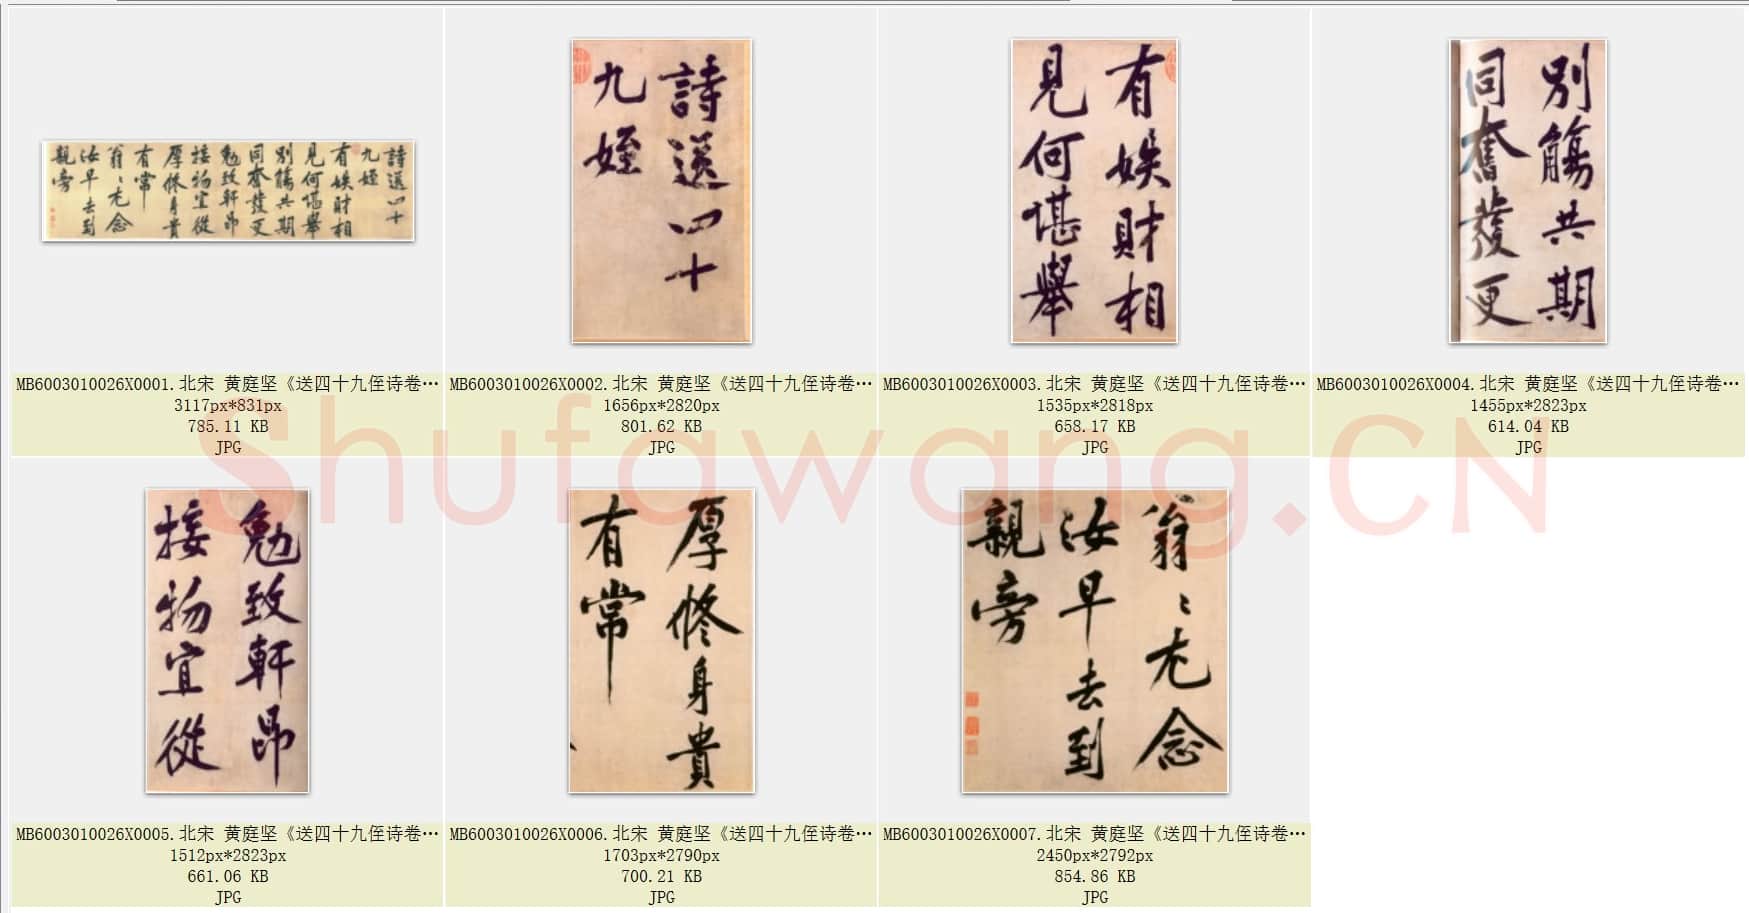 詩送四十
九姪
有娱財相
見何堪舉
別觴共期
同奮發更
勉致軒昂
接物宜從
厚修身貴
有常
翁〻尤念
汝早去到
親旁
詩送四十
九姪
有娱財相
見何堪舉
別觴共期
同奮發更
MB6003010026X0001.北宋 黄庭坚《送四十九侄诗卷…
3117px*831px
785.11 KB
JPG
MB6003010026X0002.北宋 黄庭坚《送四十九侄诗卷…
1656px*2820px
801.62 KB
JPG
MB6003010026X0003.北宋 黄庭坚《送四十九侄诗卷…
1535px*2818px
658.17 KB
JPG
MB6003010026X0004.北宋 黄庭坚《送四十九侄诗卷…
1455px*2823px
614.04 KB
JPG
Shufawang.CN
勉致軒昂
接物宜從
厚修身貴
有常
翁〻尤念
汝早去到
親旁
MB6003010026X0005.北宋 黄庭坚《送四十九侄诗卷…
1512px*2823px
661.06 KB
JPG
MB6003010026X0006.北宋 黄庭坚《送四十九侄诗卷…
1703px*2790px
700.21 KB
JPG
MB6003010026X0007.北宋 黄庭坚《送四十九侄诗卷…
2450px*2792px
854.86 KB
JPG